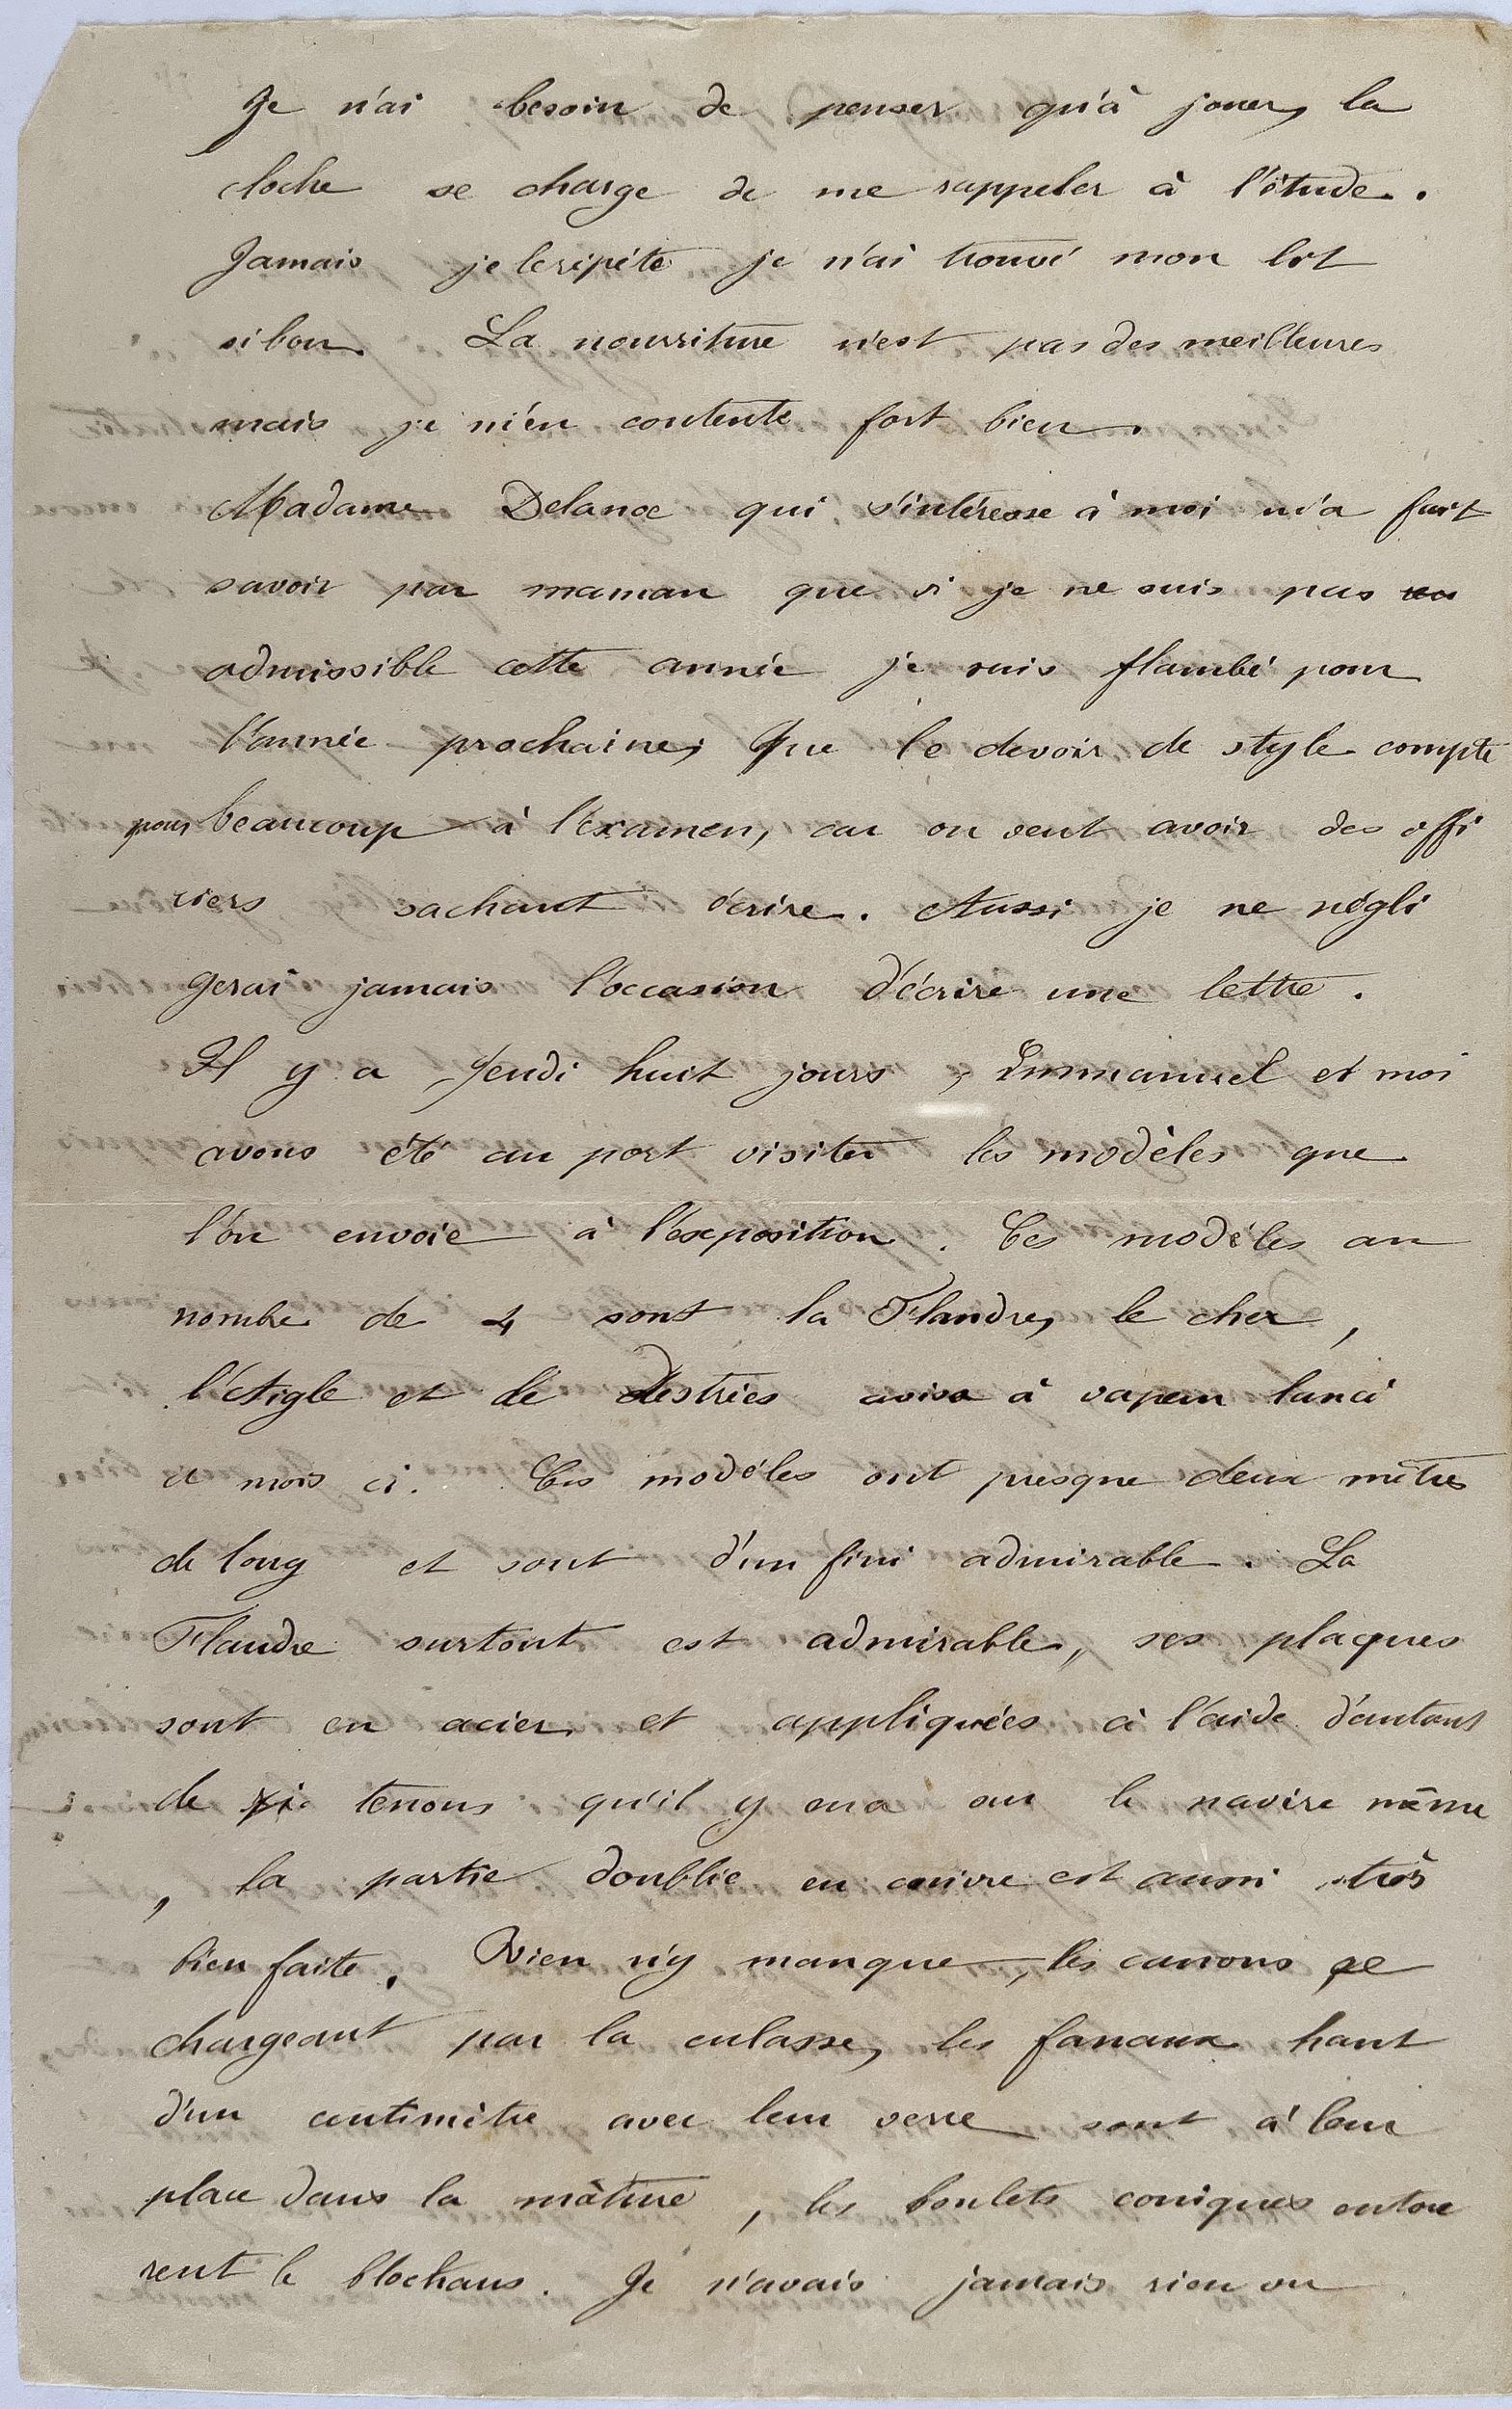 Je n'ai besoin de penser qu'à jouer, la
cloche se charge de me rappeler à l'étude.
Jamais je le répéte je n'ai trouvé mon lit
si bon. La nourriture n'est pas des meilleures
mais je m'en contente fort bien.
Madame Delanoe qui s'intéresse à moi m'a fait
savoir par maman que si je ne suis pas
admissible cette année je suis flambé pour
l'année prochaine; Que le devoir de style compte
pour beaucoup à l'examen, car on veut avoir des offi
ciers sachant écrire. Aussi je ne négli
gerai jamais l'occasion d'écrire une lettre.
Il y a Jeudi huit jours, Emmanuel et moi
avons été au port visiter les modèles que
l'on envoie à l'exposition. Ces modèles au
nombre de 4 sont la Flandre, le cher,
l'Aigle et le d'Estrées aviso à vapeur lancé
ce mois ci. Ces modèles ont presque deux mètres
de long et sont d'un fini admirable. La
Flandre surtout est admirable, ses plaques
sont en acier et appliquées à l'aide d'autant
de tenons qu'il y en a sur le navire même
, la partie doublée en cuivre est aussi très
bien faite. Rien n'y manque, les canons se
chargeant par la culasse, les fanaux haut
d'un centimètre avec leur verre sont à leur
place dans la mâture, les boulets coniques entou
rent le blockaus. Je n'avais jamais rien vu